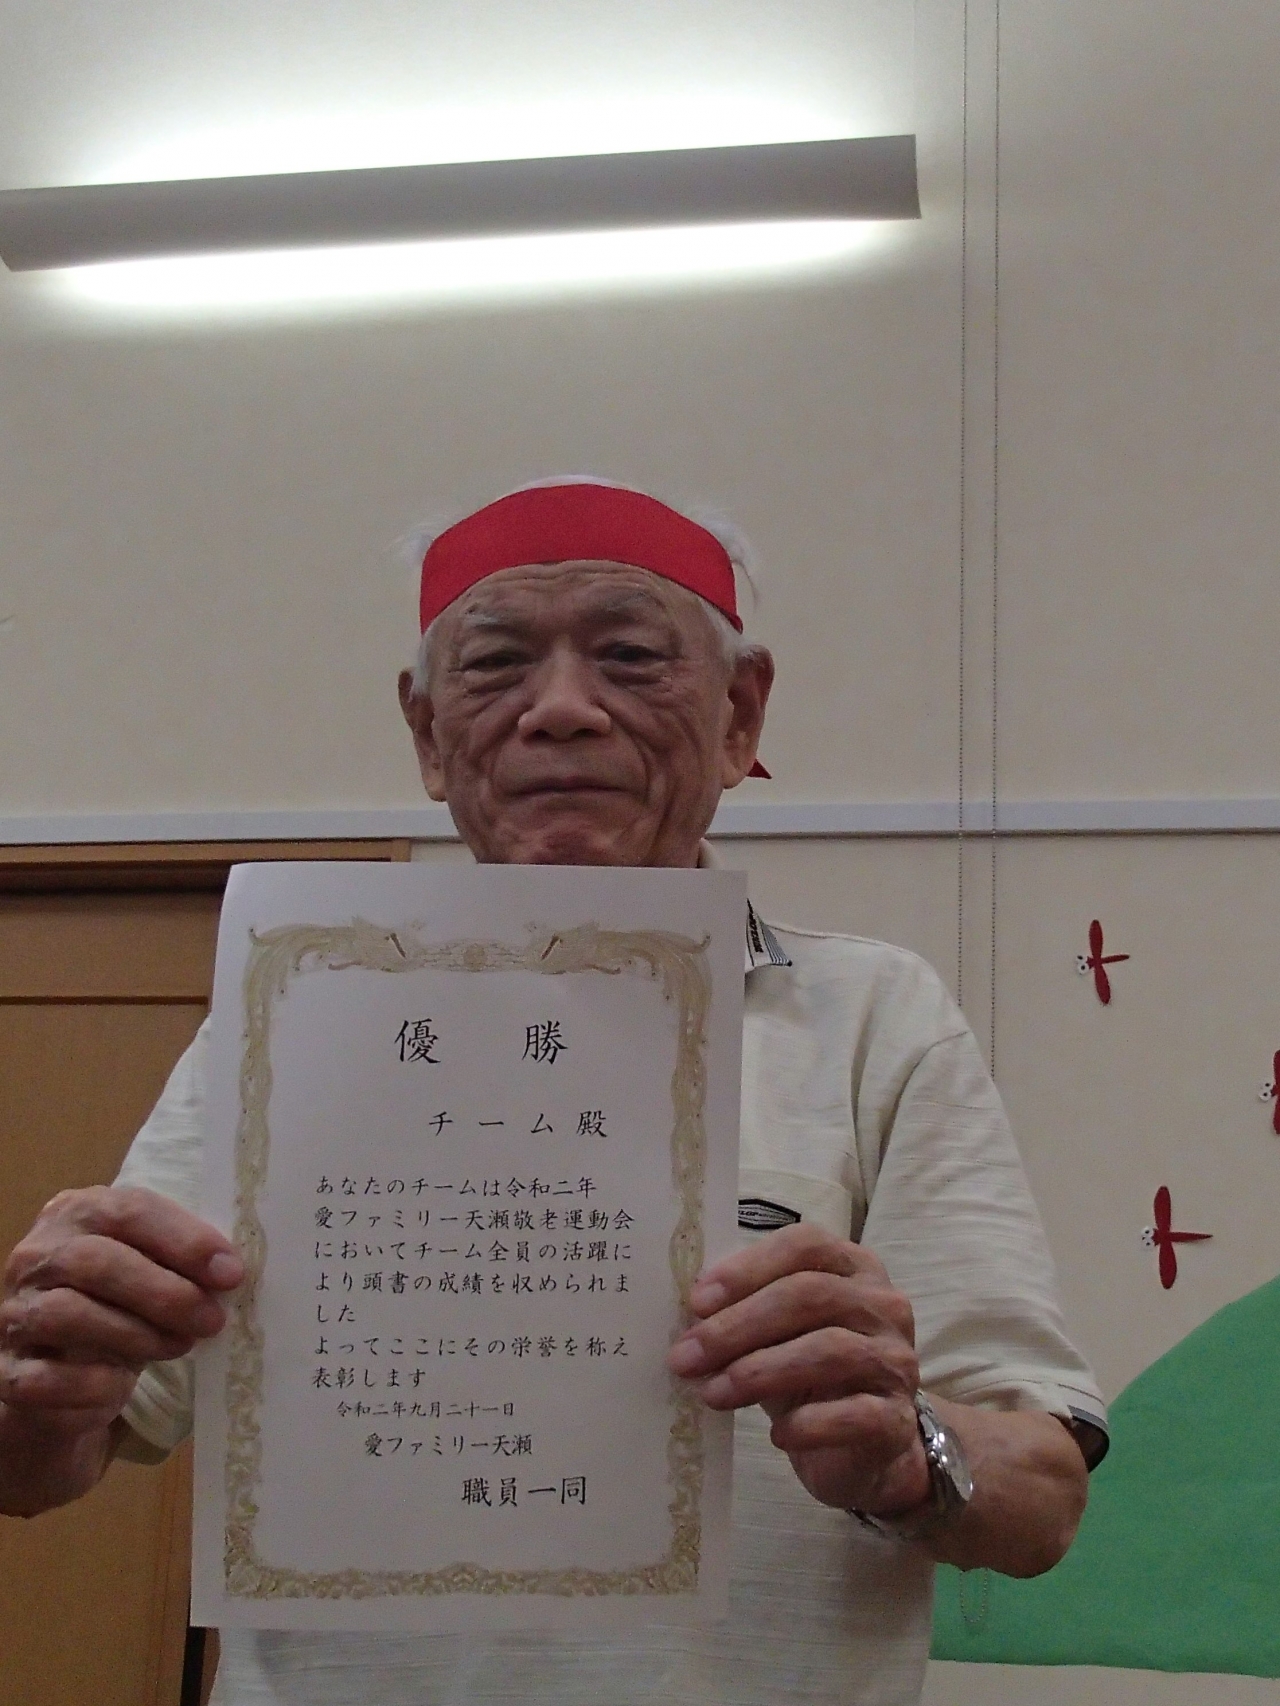 優 勝
チーム殿
あなたのチームは令和二年
愛ファミリー天瀬敬老運動会
においてチーム全員の活躍に
より頭書の成績を収められま
した
よってここにその栄誉を称え
表彰します
令和二年九月二十一日
愛ファミリー天瀬
職員一同